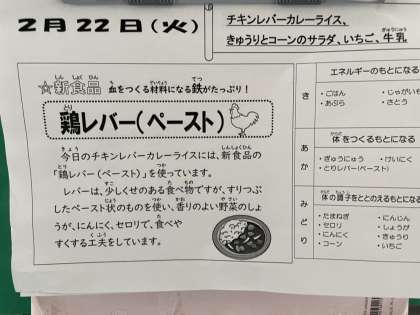 2月22日(火)
チキンレバーカレーライス、
きゅうりとコーンのサラダ、いちご、牛乳
☆新食品 血をつくる材料になる鉄がたっぷり!
鶏レバー(ペースト)
今日のチキンレバーカレーライスには、新食品の
「鶏レバー(ペースト)」を使っています。
レバーは、少しくせのある食べ物ですが、すりつぶ
したペースト状のものを使い、香りのよい野菜のしょ
うが、にんにく、セロリで、食べや
すくする工夫をしています。
エネルギーのもとになる
き
・ごはん ・じゃがいも
・あぶら ・さとう
体をつくるもとになる
あか
・ぎゅうにゅう ・けいにく
・とりレバー(ペースト)
体の調子をととのえるもとになる
みどり
・たまねぎ ・にんじん
・セロリ ・しょうが
・にんにく ・きゅうり
・コーン ・いちご